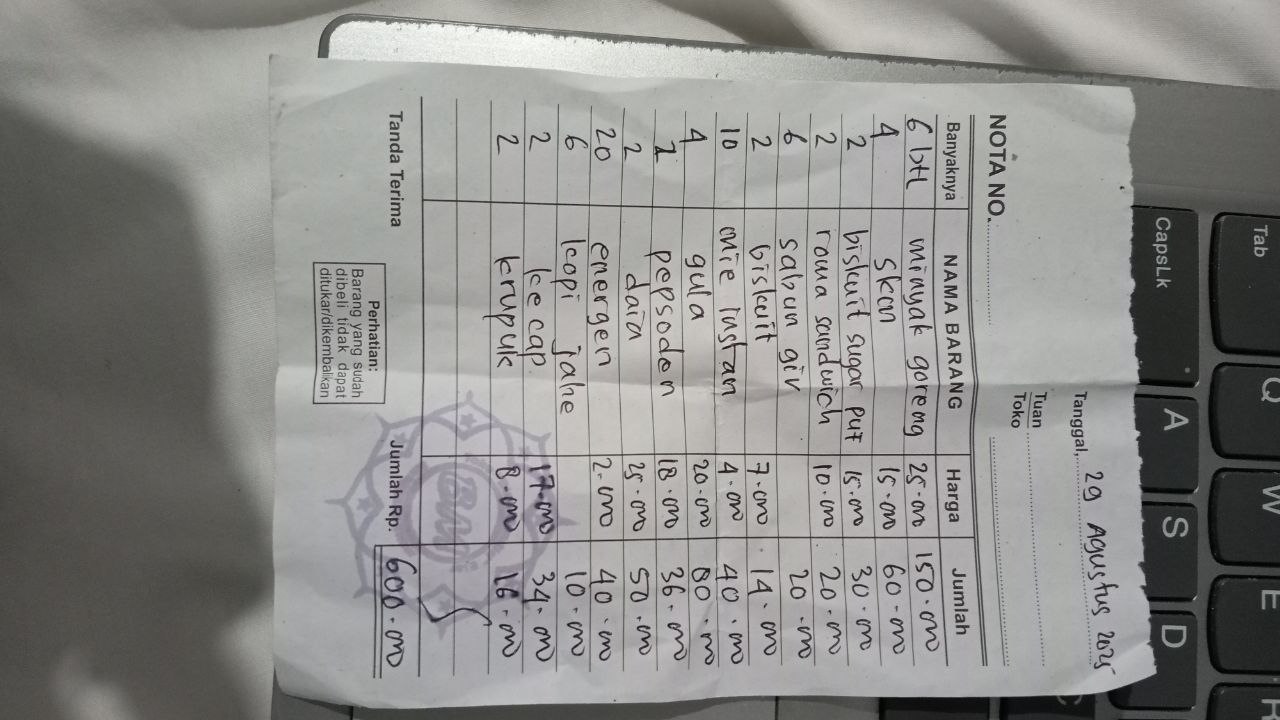 Tanggal, 29 Agustus 2025
Tuan
Toko
NOTA NO.
Banyaknya NAMA BARANG Harga Jumlah
6 btl minyak goreng 25.000 150.000
4 skm 15.000 60.000
2 biskuit sugar put 15.000 30.000
2 roma sandwich 10.000 20.000
6 sabun giv 20.000
2 biskuit 7.000 14.000
10 mie instan 4.000 40.000
4 gula 20.000 80.000
2 pepsoden 18.000 36.000
2 daia 25.000 50.000
20 energen 2.000 40.000
6 kopi jahe 10.000
2 kecap 17.000 34.000
2 krupuk 8.000 16.000
Tanda Terima
Jumlah Rp. 600.000
Perhatian:
Barang yang sudah
dibeli tidak dapat
ditukar/dikembalikan
Tab
Q
W
E
CapsLk
A
S
D